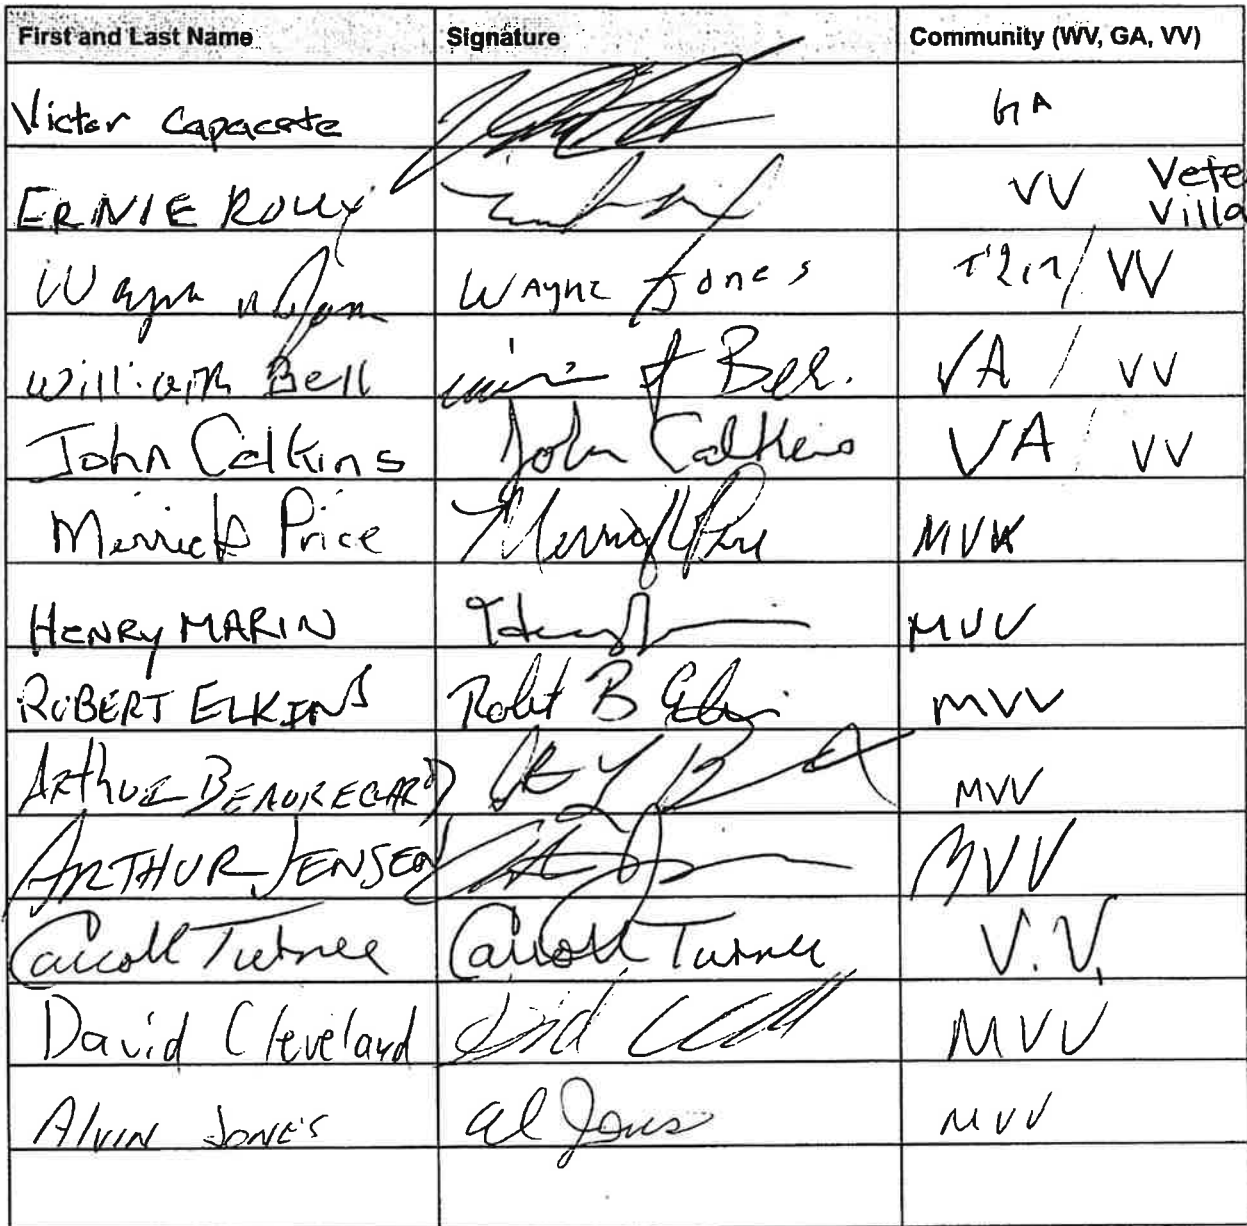 First and Last Name Signature Community (WV, GA, VV)
Victor Capacete GA
ERNIE VV Vete
Villa
Wayne Jones WAYNE JONES / VV
William Bell Bell. VA / VV
John Calkins John Calkins VA / VV
Merrick Price Merrick Price
HENRY MARIN Henry MVV
ROBERT ELKINS Robert B Elkins MVV
Arthur BEAUREGARD MVV
ARTHUR JENSEN MVV
Carroll Turner Carroll Turner V.V.
David Cleveland MVV
Alvin JONES Al Jones MVV